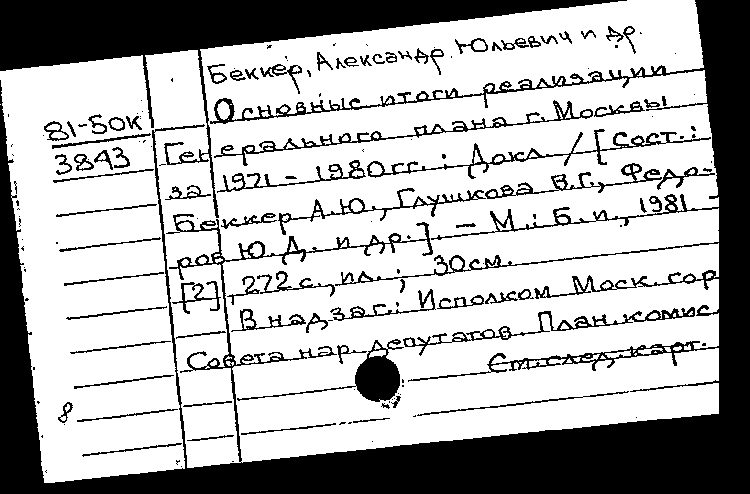 Беккер, Александр Юльевич и др.
81-50к
3843
Основные итоги реализации
Генерального плана г. Москвы
за 1971-1980 гг. : Докл / [Сост.:
Беккер А.Ю., Глушкова В.Г., Федо-
ров Ю.Д. и др.]. — М.: Б.и., 1981 -
[2], 272 с., ил. ; 30 см.
В надзаг.: Исполком Моск. гор
Совета нар. депутатов. План. комис.
См. след. карт.
8